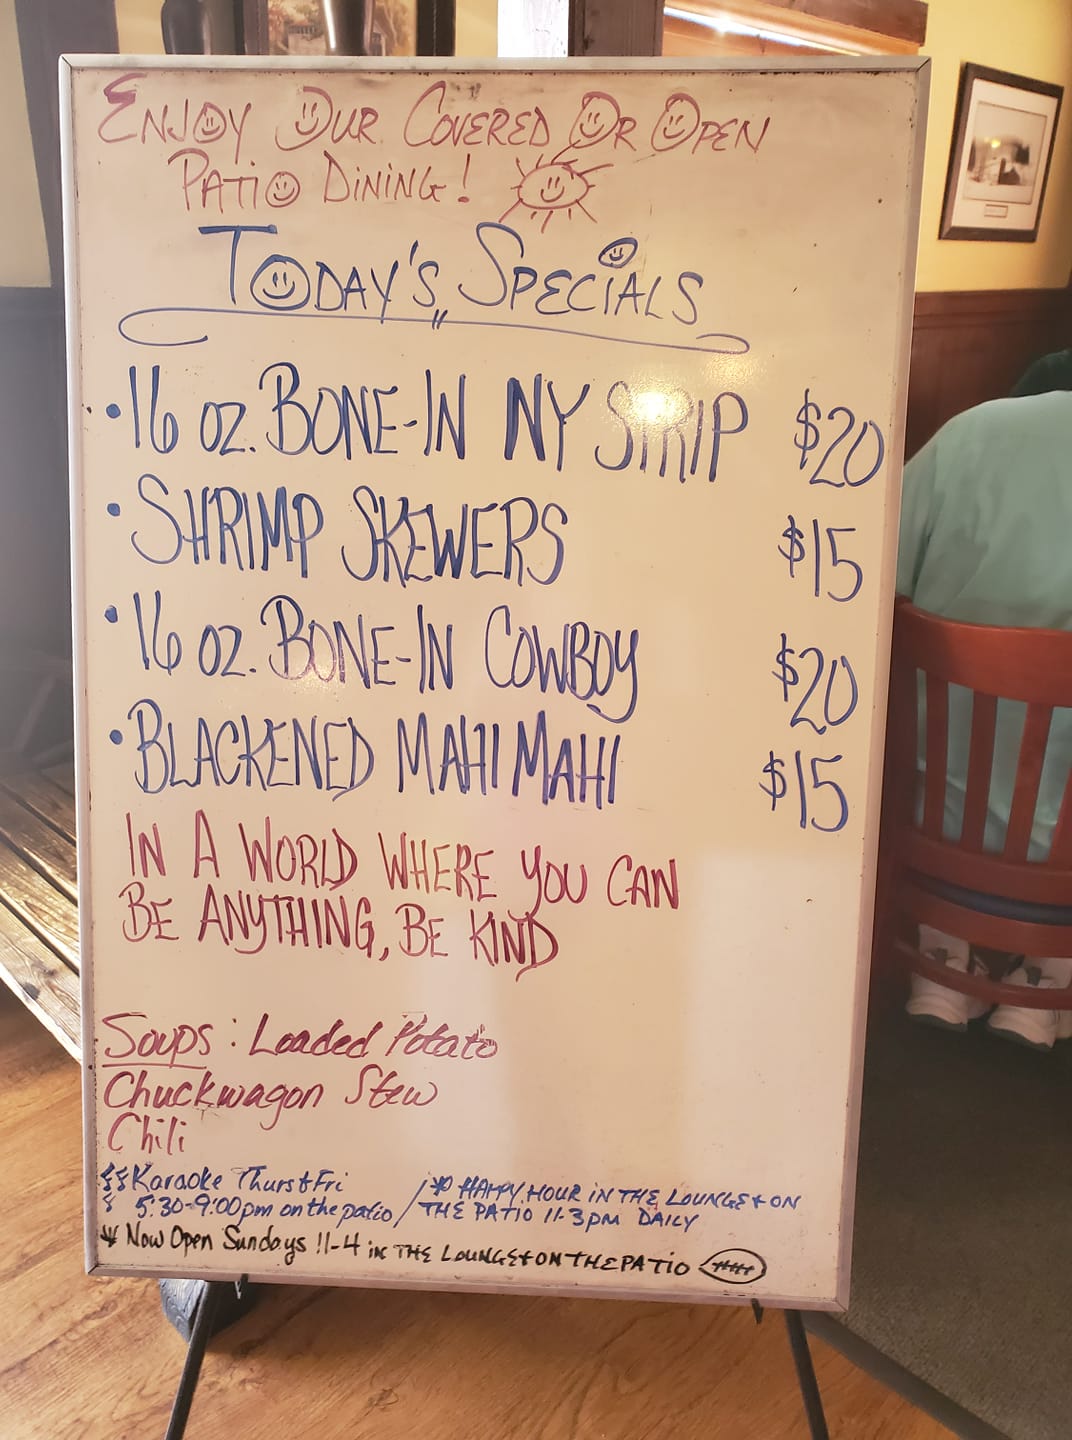 ENJOY OUR COVERED OR OPEN
PATIO DINING!
TODAY'S SPECIALS
• 16 OZ. BONE-IN NY STRIP $20
• SHRIMP SKEWERS $15
• 16 OZ. BONE-IN COWBOY $20
• BLACKENED MAHI MAHI $15
IN A WORLD WHERE YOU CAN
BE ANYTHING, BE KIND
Soups: Loaded Potato
Chuckwagon Stew
Chili
Karaoke Thurs & Fri
5:30-9:00pm on the patio
* HAPPY HOUR IN THE LOUNGE & ON
THE PATIO 11-3pm DAILY
* Now Open Sundays 11-4 in THE LOUNGE & ON THE PATIO